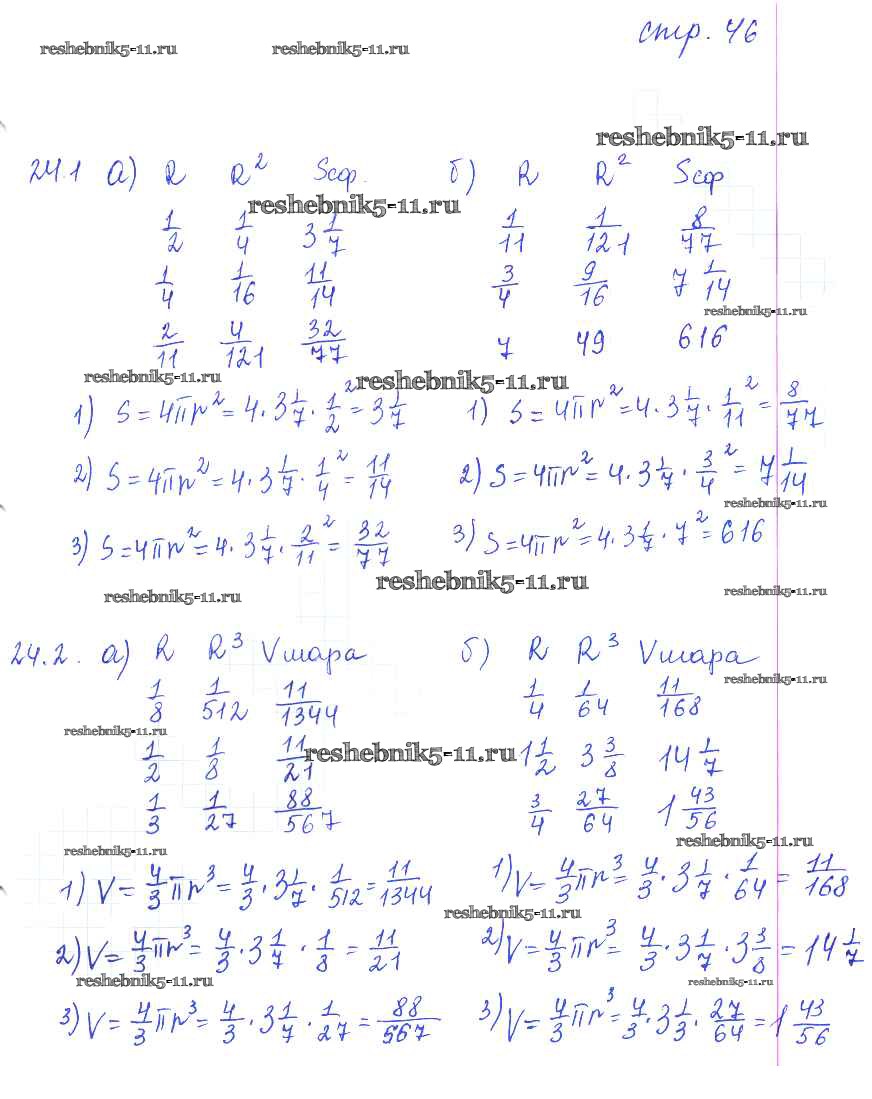 стр. 46
reshebnik5-11.ru reshebnik5-11.ru
reshebnik5-11.ru
24.1 а) R R² Sсф. б) R R² Sсф
reshebnik5-11.ru
1/2 1/4 3 1/7 1/11 1/121 8/77
1/4 1/16 11/14 3/4 9/16 7 1/14
reshebnik5-11.ru
2/11 4/121 32/77 7 49 616
reshebnik5-11.ru reshebnik5-11.ru
1) S = 4πr² = 4 · 3 1/7 · 1/2² = 3 1/7 1) S = 4πr² = 4 · 3 1/7 · 1/11² = 8/77
2) S = 4πr² = 4 · 3 1/7 · 1/4² = 11/14 2) S = 4πr² = 4 · 3 1/7 · 3/4² = 7 1/14
reshebnik5-11.ru
3) S = 4πr² = 4 · 3 1/7 · 2/11² = 32/77 3) S = 4πr² = 4 · 3 1/7 · 7² = 616
reshebnik5-11.ru
reshebnik5-11.ru reshebnik5-11.ru
24.2. а) R R³ Vшара б) R R³ Vшара
reshebnik5-11.ru
1/8 1/512 11/1344 1/4 1/64 11/168
reshebnik5-11.ru
1/2 1/8 11/21 1 1/2 3 3/8 14 1/7
reshebnik5-11.ru
1/3 1/27 88/567 3/4 27/64 1 43/56
reshebnik5-11.ru reshebnik5-11.ru
1) V = 4/3 πr³ = 4/3 · 3 1/7 · 1/512 = 11/1344 1) V = 4/3 πr³ = 4/3 · 3 1/7 · 1/64 = 11/168
reshebnik5-11.ru
2) V = 4/3 πr³ = 4/3 · 3 1/7 · 1/8 = 11/21 2) V = 4/3 πr³ = 4/3 · 3 1/7 · 3 3/8 = 14 1/7
reshebnik5-11.ru reshebnik5-11.ru
3) V = 4/3 πr³ = 4/3 · 3 1/7 · 1/27 = 88/567 3) V = 4/3 πr³ = 4/3 · 3 1/3 · 27/64 = 1 43/56